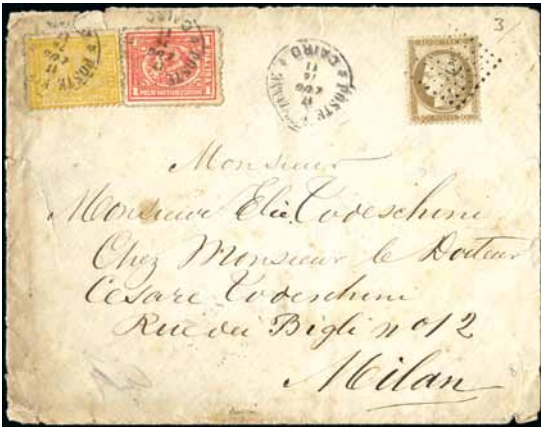 3
POSTE
CAIRO
REPUB FRANC
Monsieur
Monsieur Elie Todeschini
Chez Monsieur le Docteur
Cesare Todeschini
Rue dei Bigli nº 12
Milan